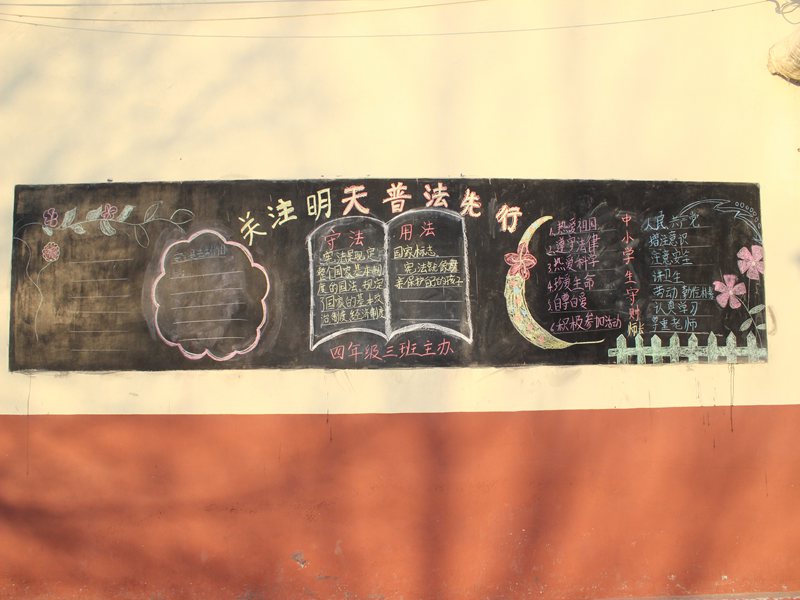 关注明天普法先行
守法
宪法是规定
整个国家基本制
度的国法,规定
了国家的基本政
治制度,经济制度
用法
国家标志。
宪法能像
来保护自己的孩子
四年级三班主办
1.热爱祖国
2.遵守法律
3.热爱科学
4.珍爱生命
5.自尊自爱
6.积极参加活动
中小学生守则
人民共
意识
注意安全
讲卫生
劳动 勤俭
认真学习
尊重老师